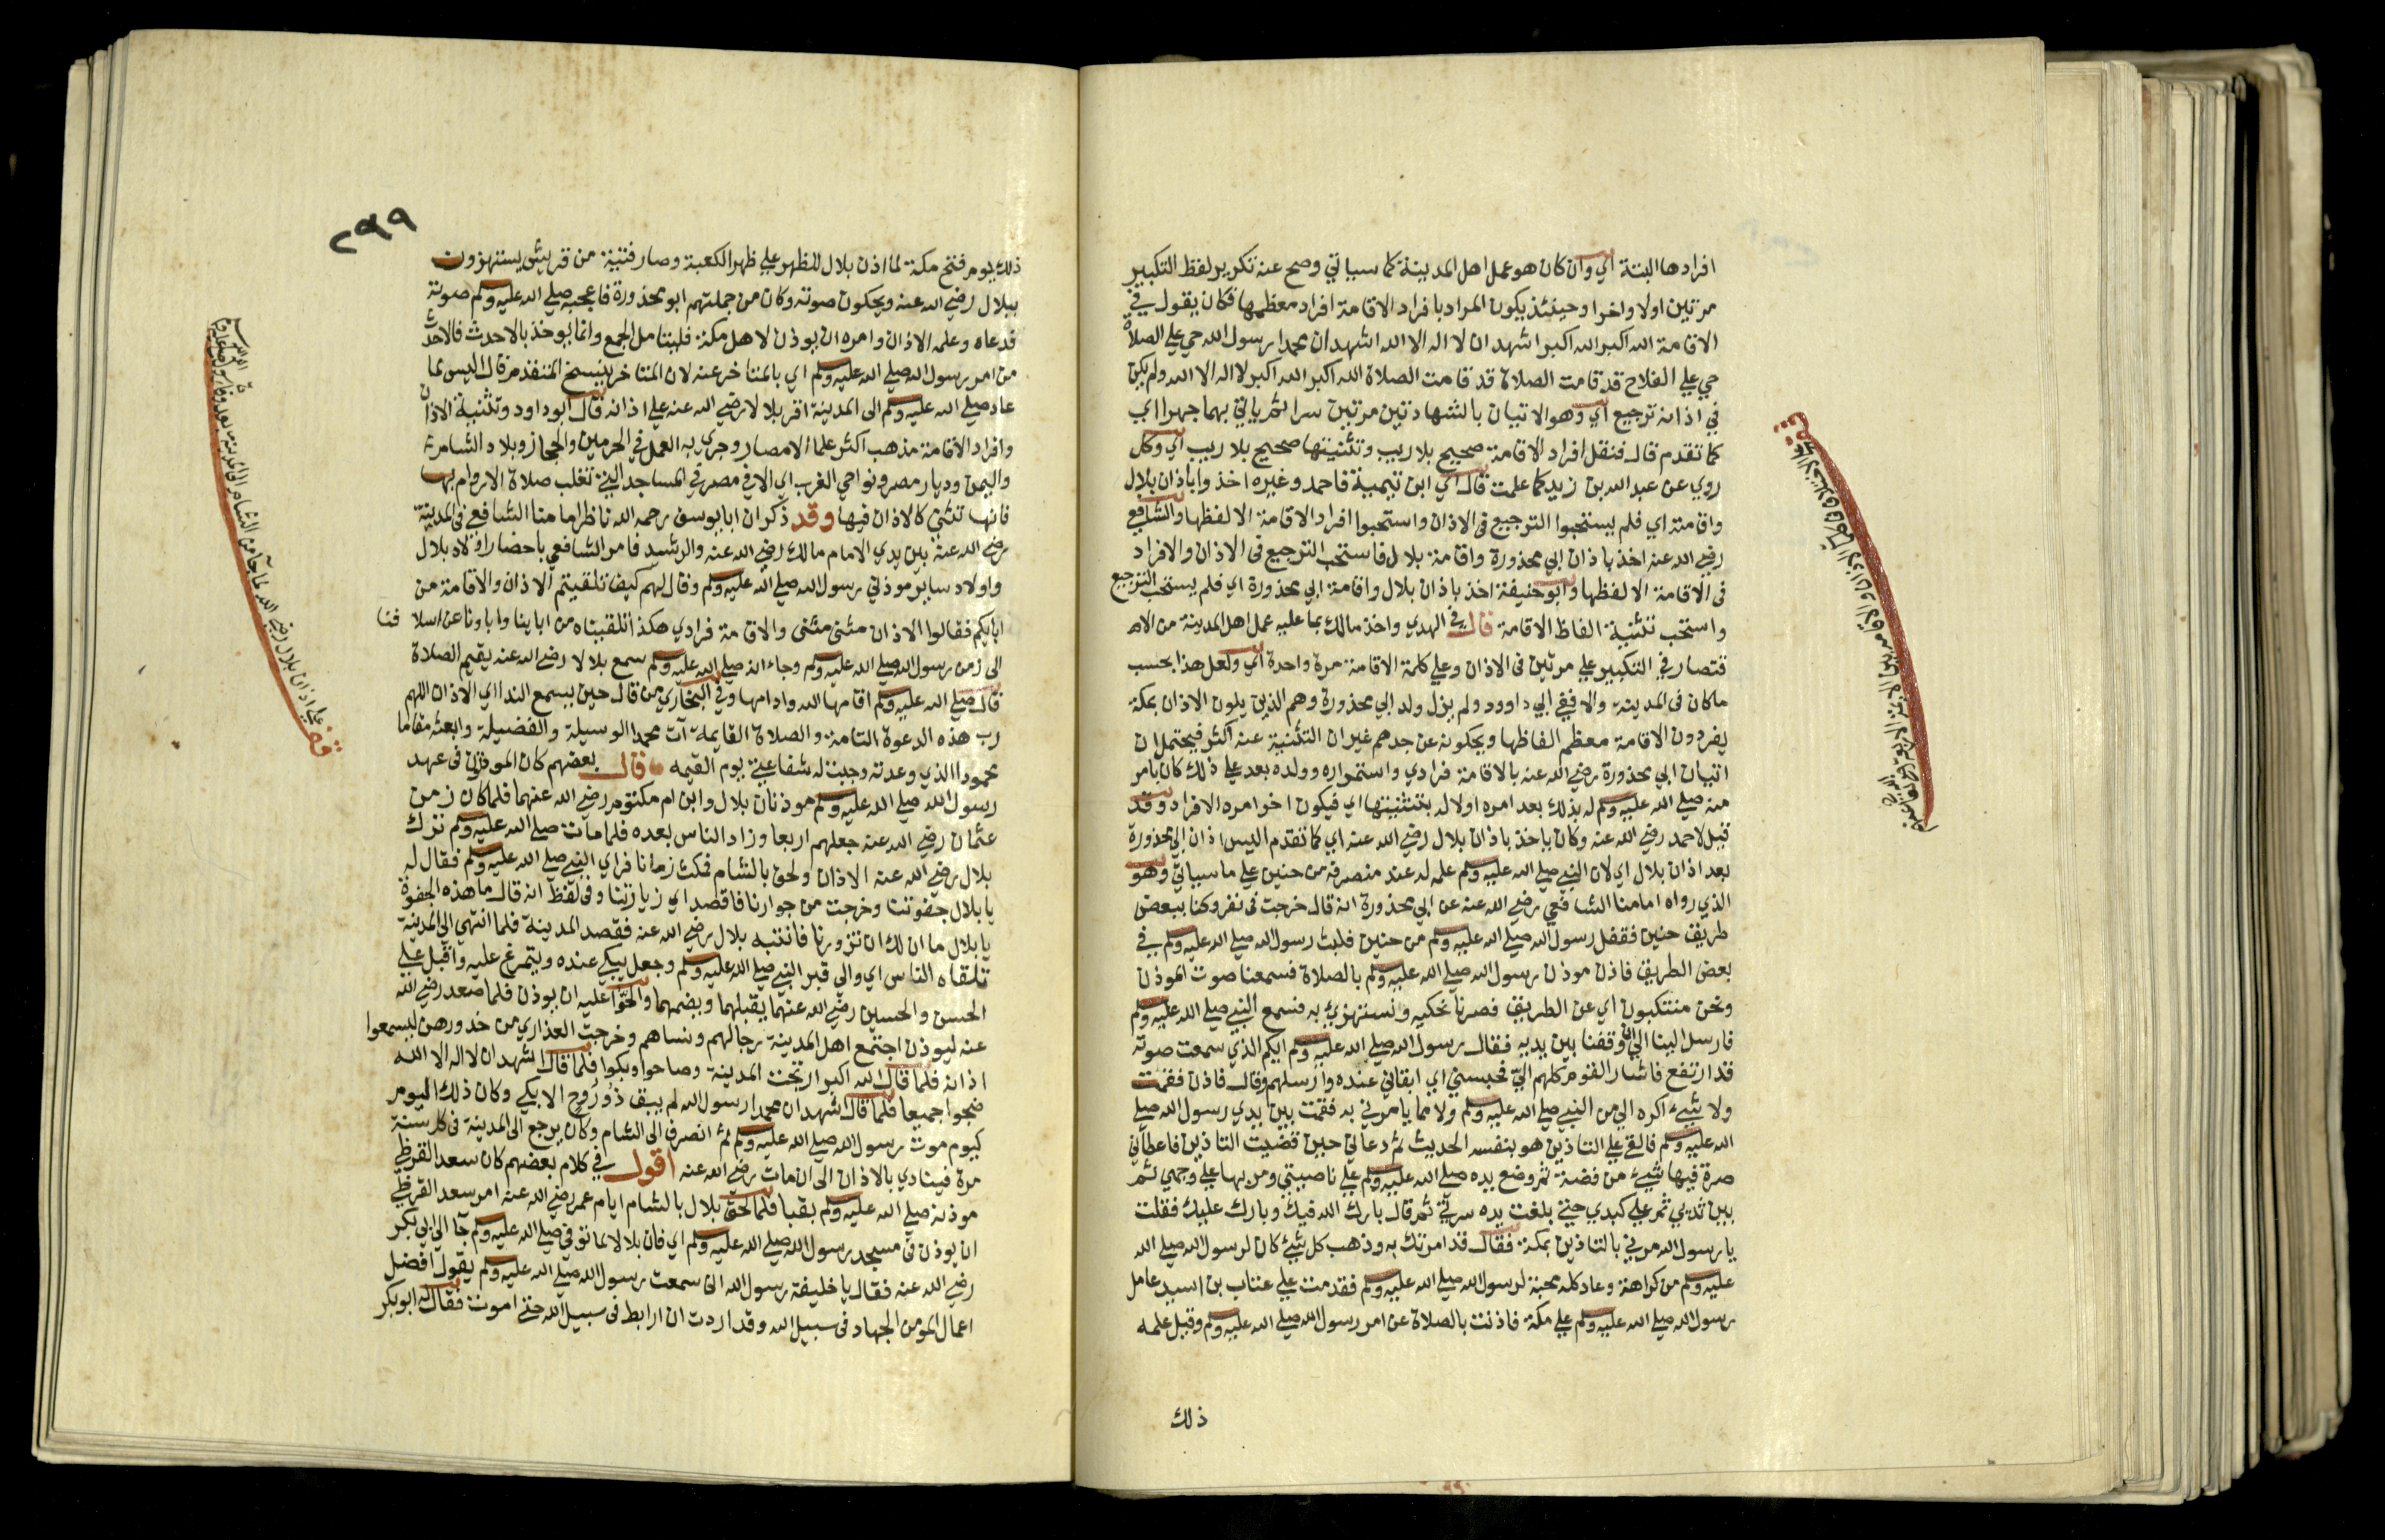 افرادها البتة اي وان كان هو عمل اهل المدينة كما سياتي وصح عنه تكرير لفظ التكبير
مرتين اولا واخرا وحينئذ يكون المراد بافراد الاقامة افراد معظمها فكان يقول في
الاقامة الله اكبر الله اكبر اشهد ان لا اله الا الله اشهد ان محمدا رسول الله حي علي الصلاة
حي علي الفلاح قد قامت الصلاة قد قامت الصلاة الله اكبر الله اكبر لا اله الا الله ولم يكن
في اذانه ترجيع اي وهو الاتيان بالشهادتين مرتين سرا ثم ياتي بهما جهرا اي
كما تقدم قال فنقل افراد الاقامة صحيح بلا ريب وتثنيتها صحيح بلا ريب اي وكل
روي عن عبد الله بن زيد كما علمت قال اي ابن تيمية فاحمد وغيره اخذوا باذان بلال
واقامته اي فلم يستحبوا الترجيع في الاذان واستحبوا افراد الاقامة الا لفظها والشافعي
رضي الله عنه اخذ باذان ابي محذورة واقامة بلال فاستحب الترجيع في الاذان والافراد
في الاقامة الا لفظها وابو حنيفة اخذ باذان بلال واقامة ابي محذورة اي فلم يستحب الترجيع
واستحب تثنية الفاظ الاقامة قال في الهدي واخذ مالك بما عليه عمل اهل المدينة من الا
قتصار في التكبير علي مرتين في الاذان وعلي كلمة الاقامة مرة واحدة اي ولعل هذا بحسب
ماكان في المدينة والا ففي ابي داوود ولم يزل ولد ابي محذورة وهم الذين يلون الاذان بمكة
يفردون الاقامة معظم الفاظها ويحكونه عن جدهم غير ان التثنية عنه اكثر فيحتمل ان
اتيان ابي محذورة رضي الله عنه بالاقامة فرادي واستمراره وولده بعد علي ذلك كان بامر
منه صلي الله عليه وسلم له بذلك بعد امره اولا له بتثنيتها اي فيكون اخر امره الافراد وقد
قيل لاحمد رضي الله عنه وكان ياخذ باذان بلال رضي الله عنه اي كما تقدم اليس اذان ابي محذورة
بعد اذان بلال اي لان النبي صلي الله عليه وسلم علمه له عند منصرفه من حنين علي ما سياتي وهو
الذي رواه امامنا الشافعي رضي الله عنه عن ابي محذورة انه قال خرجت في نفر وكنا ببعض
طريق حنين فقفل رسول الله صلي الله عليه وسلم من حنين فلبث رسول الله صلي الله عليه وسلم في
بعض الطريق فاذن موذن رسول الله صلي الله عليه وسلم بالصلاة فسمعنا صوت الموذن
ونحن متنكبون اي عن الطريق فصرنا نحكيه ونستهزي به فسمع النبي صلي الله عليه وسلم
فارسل الينا الي ان وقفنا بين يديه فقال رسول الله صلي الله عليه وسلم ايكم الذي سمعت صوته
قد ارتفع فاشار القوم كلهم الي فحبسني اي ابقاني عنده وارسلهم وقال فاذن فقمت
ولا شيء اكره الي من النبي صلي الله عليه وسلم ولا مما يامرني به فقمت بين يدي رسول الله صلي
الله عليه وسلم فالقي علي التاذين هو بنفسه الحديث ثم دعاني حين قضيت التاذين فاعطاني
صرة فيها شيء من فضة ثم وضع يده صلي الله عليه وسلم علي ناصيتي ومر بها علي وجهي ثم
بين ثديي ثم علي كبدي حتي بلغت يده سرتي ثم قال بارك الله فيك وبارك عليك فقلت
يا رسول الله مرني بالتاذين بمكة فقال قد امرتك به وذهب كل شيء كان لرسول الله صلي الله
عليه وسلم من كراهة وعاد كله محبة لرسول الله صلي الله عليه وسلم فقدمت علي عتاب بن اسيد عامل
رسول الله صلي الله عليه وسلم علي مكة فاذنت بالصلاة عن امر رسول الله صلي الله عليه وسلم وقيل علمه
ذلك
٢٩٩
ذلك يوم فتح مكة لما اذن بلال للظهر علي ظهر الكعبة وصار فتية من قريش يستهزون
ببلال رضي الله عنه ويحكون صوته وكان من جملتهم ابو محذورة فاعجبه صلي الله عليه وسلم صوته
فدعاه وعلمه الاذان وامره ان يوذن لاهل مكة فليتامل الجمع وانما يوخذ بالاحدث فالاحدث
من امر رسول الله صلي الله عليه وسلم اي بالمتاخر عنه لان المتاخر ينسخ المتقدم قال اليس لما
عاد صلي الله عليه وسلم الى المدينة اقر بلالا رضي الله عنه علي اذانه قال ابو داود وتثنية الاذان
وافراد الاقامة مذهب اكثر علما الامصار وجري به العمل في الحرمين والحجاز وبلاد الشام
واليمن وديار مصر ونواحي الغرب اي الا في مصر في المساجد التي تغلب صلاة الاروام بها
فانها تثني كالاذان فيها وقد ذكر ان ابا يوسف رحمه الله ناظر امامنا الشافعي في المدينة
رضي الله عنه بين يدي الامام مالك رضي الله عنه والرشيد فامر الشافعي باحضار اولاد بلال
واولاد ساير موذني رسول الله صلي الله عليه وسلم وقال لهم كيف تلقيتم الاذان والاقامة من
ابايكم فقالوا الاذان مثني مثني والاقامة فرادي هكذا تلقيناه من ابائنا واباونا عن اسلافنا
الى زمن رسول الله صلي الله عليه وسلم وجاء انه صلي الله عليه وسلم سمع بلالا رضي الله عنه يقيم الصلاة
قال صلي الله عليه وسلم اقامها الله وادامها وفي البخاري من قال حين يسمع الندا اي الاذان اللهم
رب هذه الدعوة التامة والصلاة القايمة آت محمدا الوسيلة والفضيلة وابعثه مقاما
محمودا الذي وعدته وجبت له شفاعتي يوم القيمه قال بعضهم كان الموذن في عهد
رسول الله صلي الله عليه وسلم موذنان بلال وابن ام مكتوم رضي الله عنهما فلما كان زمن
عثمان رضي الله عنه جعلهم اربعا وزاد الناس بعده فلما مات صلي الله عليه وسلم ترك
بلال رضي الله عنه الاذان ولحق بالشام فمكث زمانا فراي النبي صلي الله عليه وسلم فقال له
يا بلال جفوتنا وخرجت من جوارنا فاقصد اي زيارتنا وفي لفظ انه قال ما هذه الجفوة
يا بلال ما ان لك ان تزورنا فانتبه بلال رضي الله عنه فقصد المدينة فلما انتهي الي المدينة
تلقاه الناس اي واتي قبر النبي صلي الله عليه وسلم وجعل يبكي عنده ويتمرغ عليه واقبل علي
الحسن والحسين رضي الله عنهما يقبلهما ويضمهما والحوا عليه ان يوذن فلما صعد رضي الله
عنه ليوذن اجتمع اهل المدينة رجالهم ونساهم وخرجت العذاري من خدورهن ليسمعوا
اذانه فلما قال الله اكبر ارتجت المدينة وصاحوا وبكوا فلما قال اشهد ان لا اله الا الله
ضجوا جميعا فلما قال اشهد ان محمدا رسول الله لم يبق ذو روح الا بكي وكان ذلك اليوم
كيوم موت رسول الله صلي الله عليه وسلم ثم انصرف الى الشام وكان يرجع الى المدينة في كل سنة
مرة فينادي بالاذان الى ان مات رضي الله عنه اقول في كلام بعضهم كان سعد القرظي
موذنه صلي الله عليه وسلم بقبا فلما لحق بلال بالشام ايام عمر رضي الله عنه امر سعد القرظي
ان يوذن في مسجد رسول الله صلي الله عليه وسلم اي فان بلالا لما توفي صلي الله عليه وسلم جا الي ابي بكر
رضي الله عنه فقال يا خليفة رسول الله اني سمعت رسول الله صلي الله عليه وسلم يقول افضل
اعمال المومن الجهاد في سبيل الله وقد اردت ان ارابط في سبيل الله حتي اموت فقال له ابو بكر